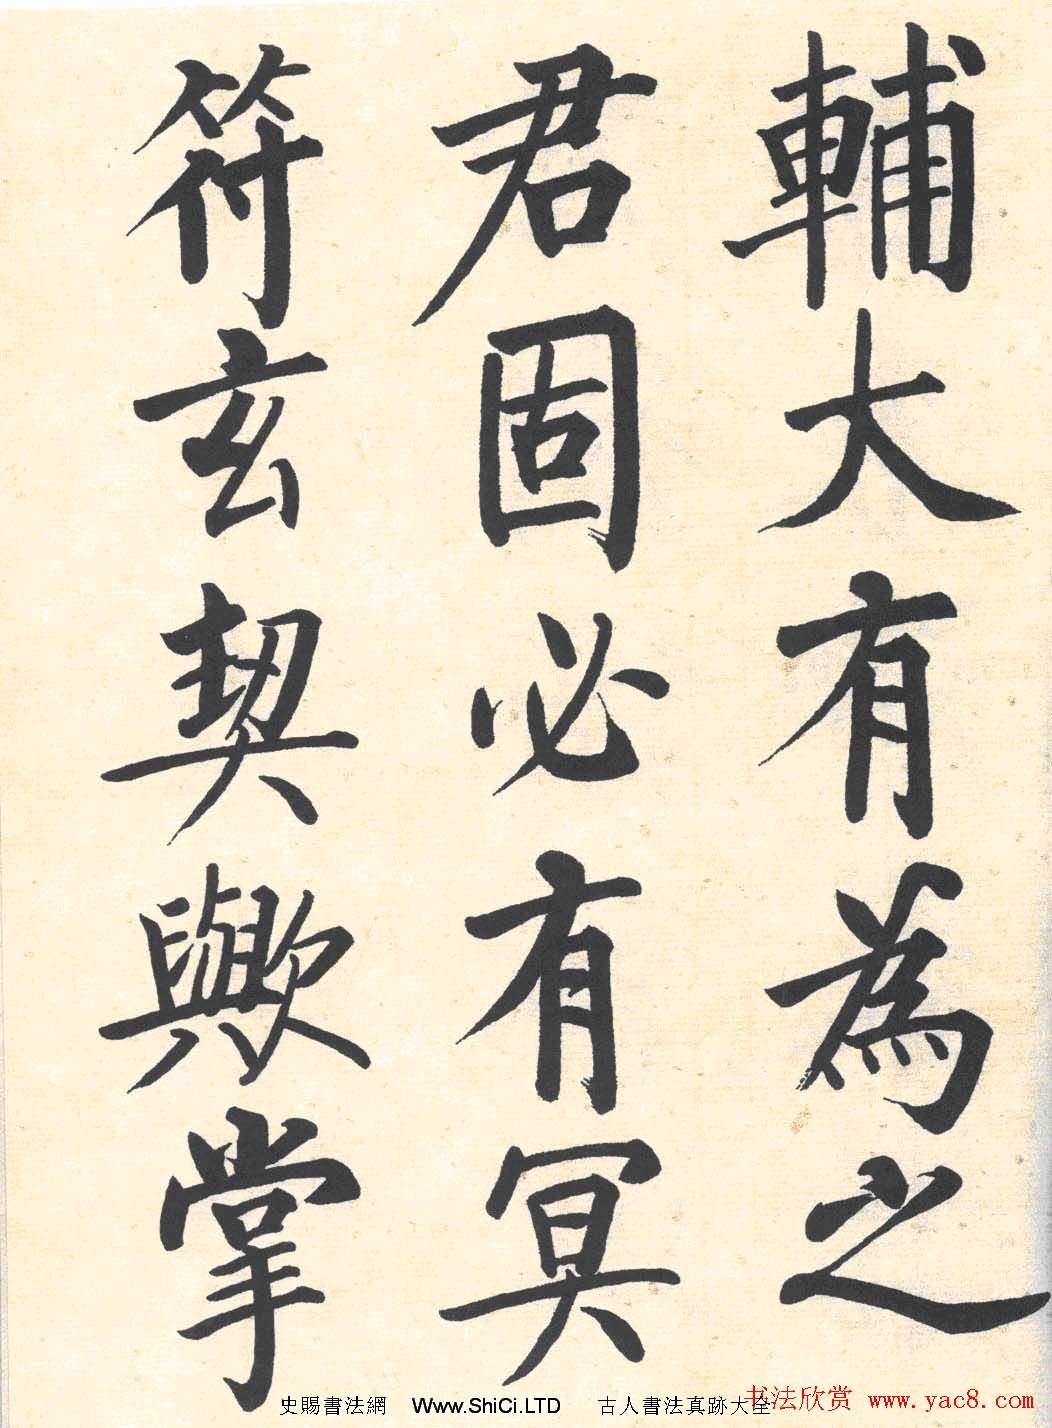 輔大有為之
君固必有冥
符玄契歟掌
史賜書法網 Www.ShiCi.LTD 古人書法真跡大全
书法欣赏 www.yac8.com